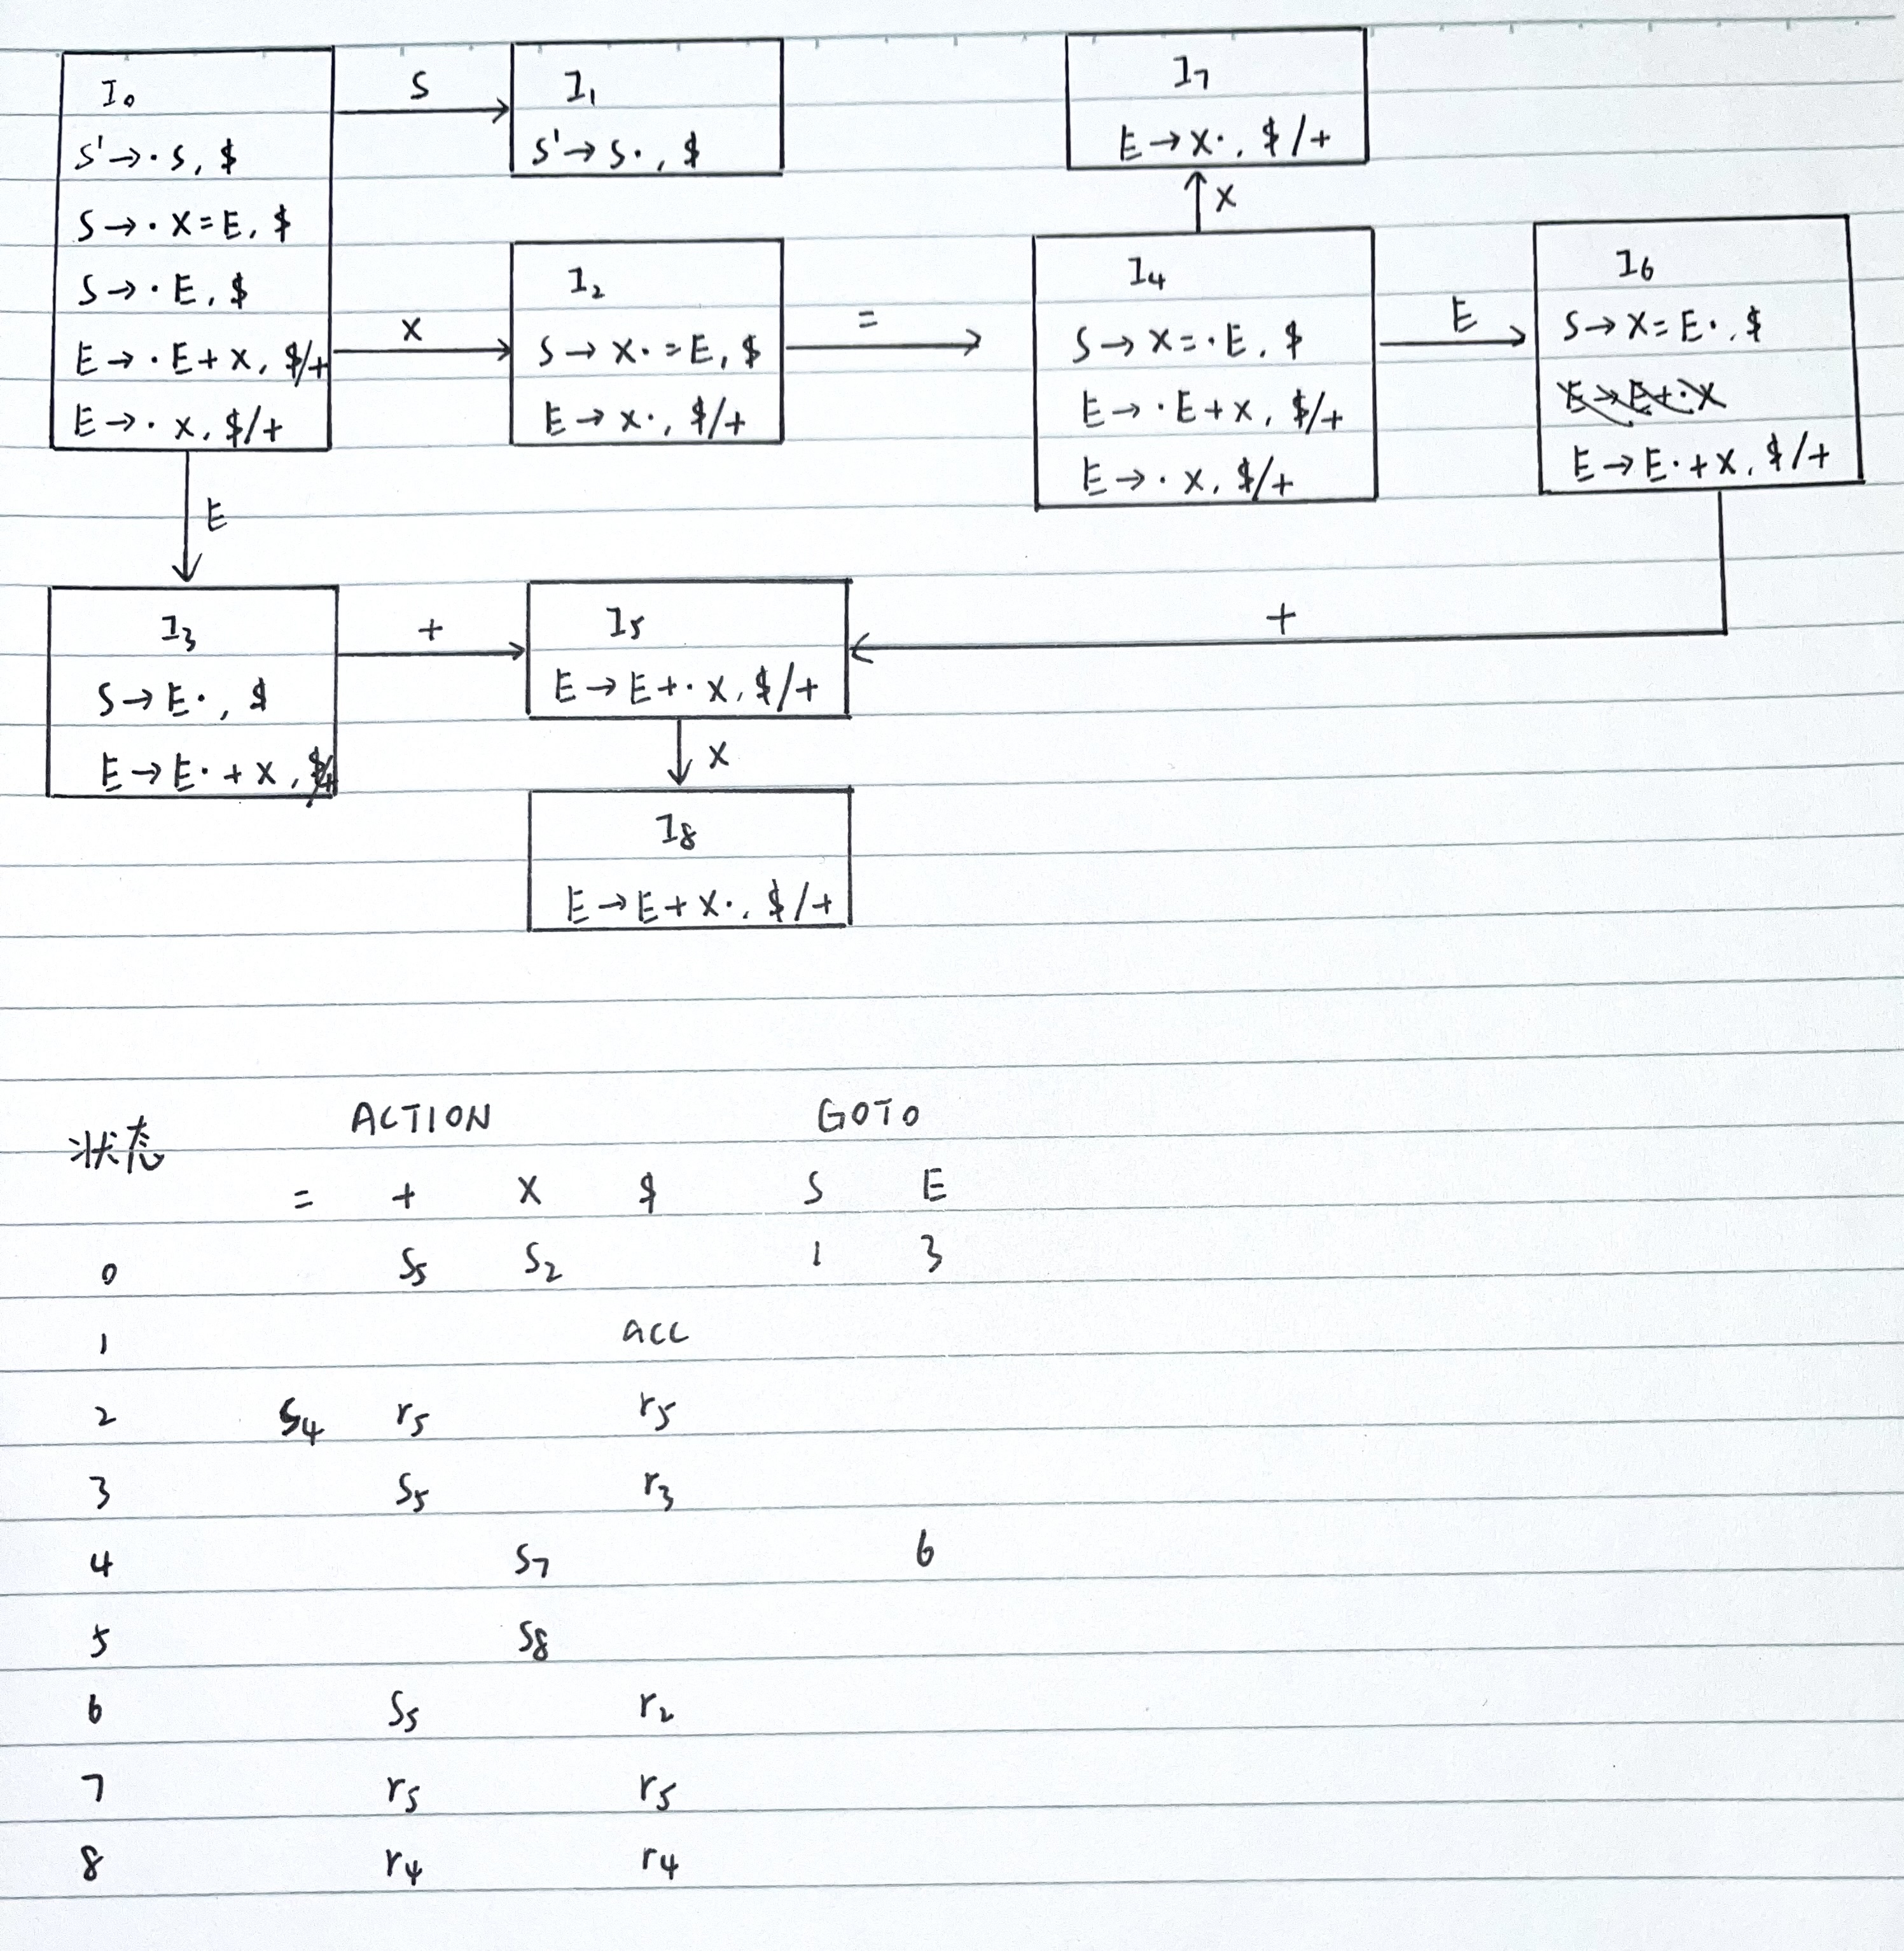 I0
S'→·S, $
S→·X=E, $
S→·E, $
E→·E+X, $/+
E→·X, $/+
S
I1
S'→S·, $
X
I2
S→X·=E, $
E→X·, $/+
=
I7
E→X·, $/+
X
I4
S→X=·E, $
E→·E+X, $/+
E→·X, $/+
E
I6
S→X=E·, $
E→E+·X
E→E·+X, $/+
E
I3
S→E·, $
E→E·+X, $/+
+
I5
E→E+·X, $/+
+
X
I8
E→E+X·, $/+
状态 ACTION GOTO
= + X $ S E
0 S5 S2 1 3
1 acc
2 S4 r5 r5
3 S5 r3
4 S7 6
5 S8
6 S5 r2
7 r5 r5
8 r4 r4